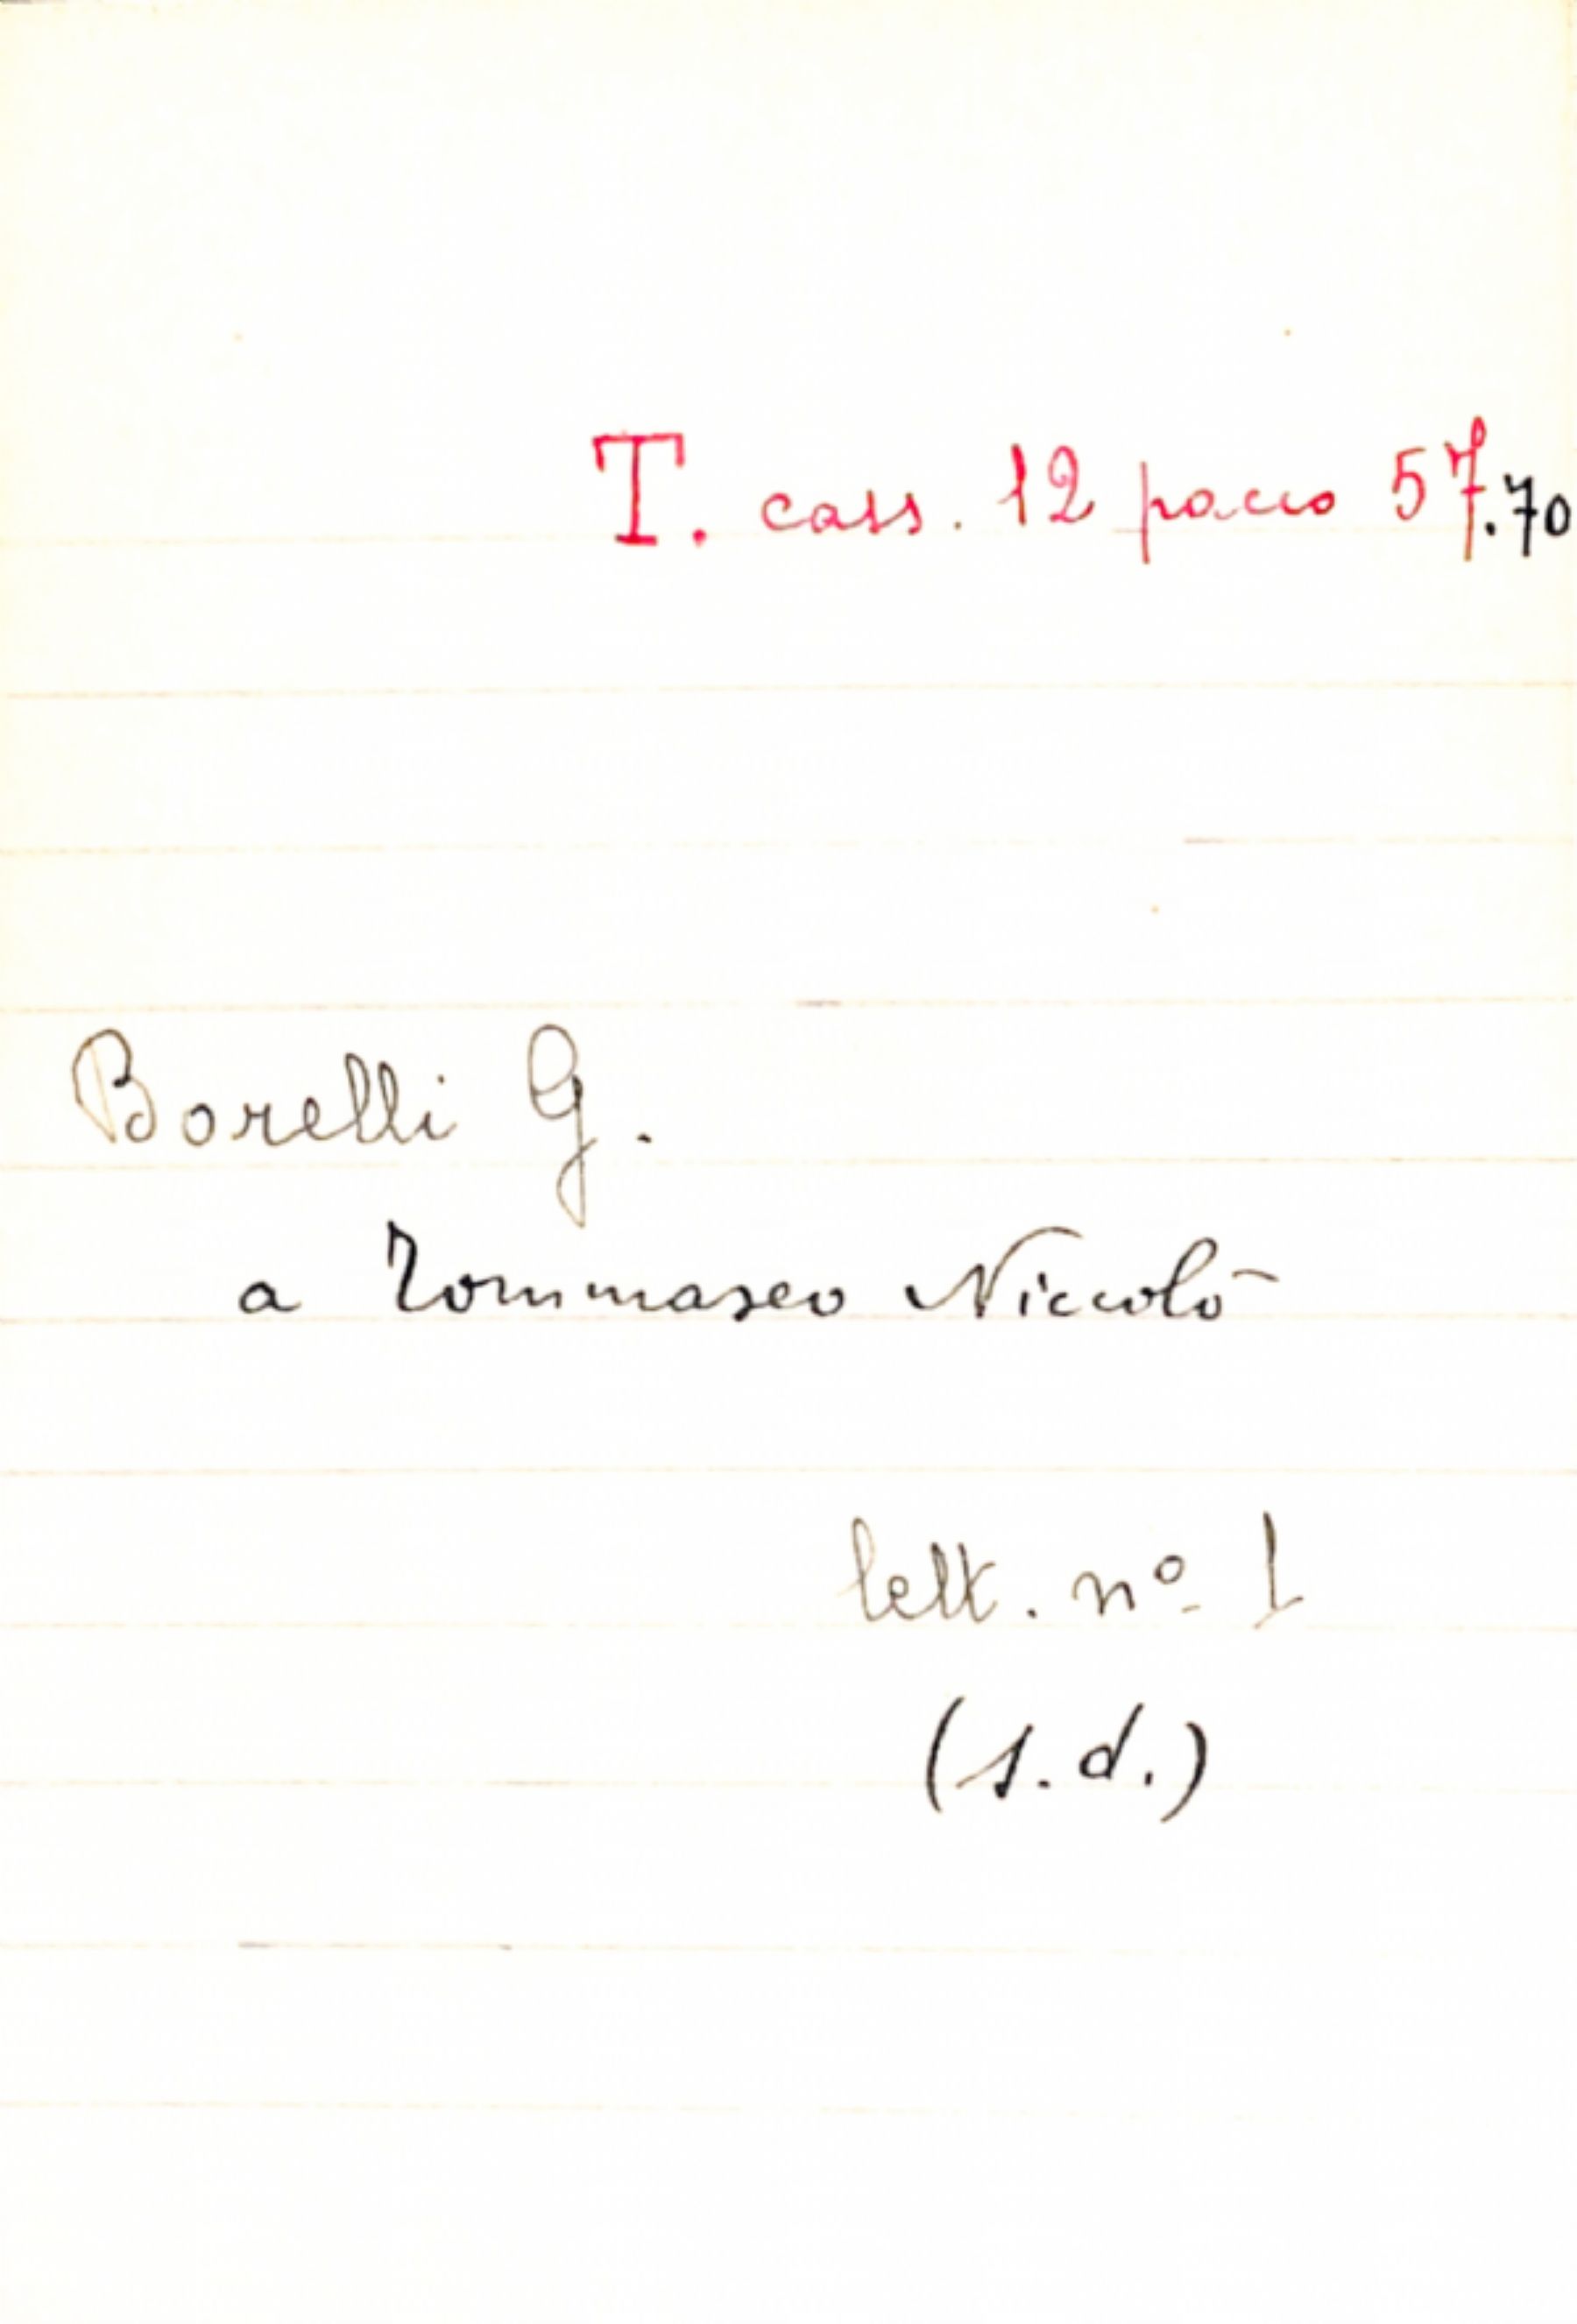 T. cass. 12 pacco 57.70
Borelli G.
a Tommaseo Niccolò
lett. nº 1
(s.d.)